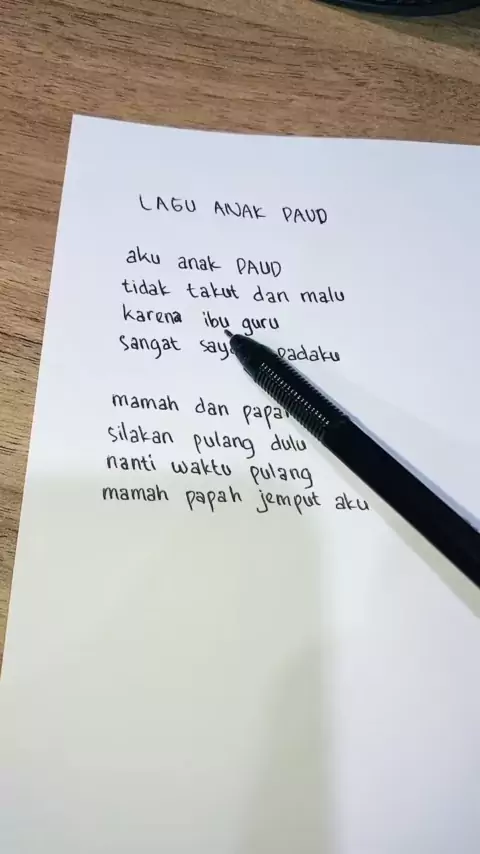 LAGU ANAK PAUD
aku anak PAUD
tidak takut dan malu
karena ibu guru
sangat padaku
mamah dan
silakan pulang dulu
nanti waktu pulang
mamah papah jemput aku